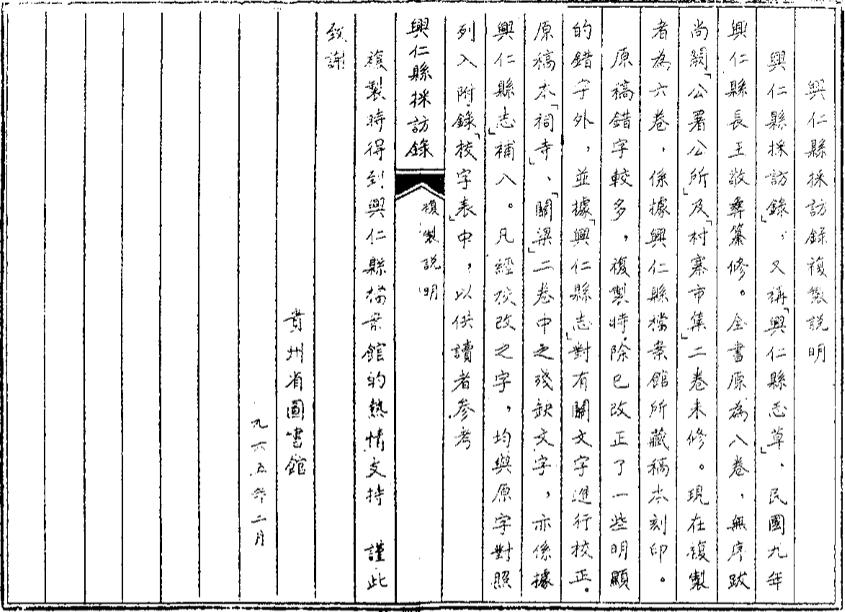 興仁縣採訪錄複製説明
興仁縣採訪錄，又稱「興仁縣志草」，民國九年
興仁縣長王敬彝纂修。全書原為八卷，無序跋
尚闕「公署公所」及「村寨市集」二卷未修。現在複製
者為六卷，係據興仁縣檔案館所藏稿本刻印。
原稿錯字較多，複製時除已改正了一些明顯
的錯字外，並據「興仁縣志」對有關文字進行校正。
原稿本「祠寺」、「關梁」二卷中之殘缺文字，亦係據
「興仁縣志」補入。凡經校改之字，均與原字對照
列入附錄「校字表」中，以供讀者參考
興仁縣採訪錄 複製説明
複製時得到興仁縣檔案館的熱情支持 謹此
致謝
貴州省圖書館
九六五年二月